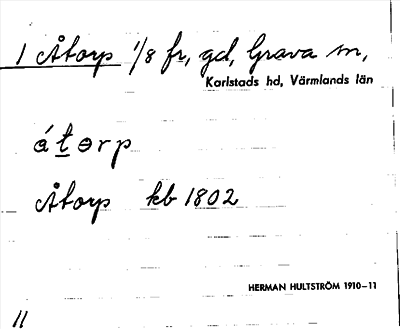 1 Åtorp 1/8 fr, gd, Grava sn,
Karlstads hd, Värmlands län
át̲ɵrp
Åtorp kb 1802
HERMAN HULTSTRÖM 1910–11
11